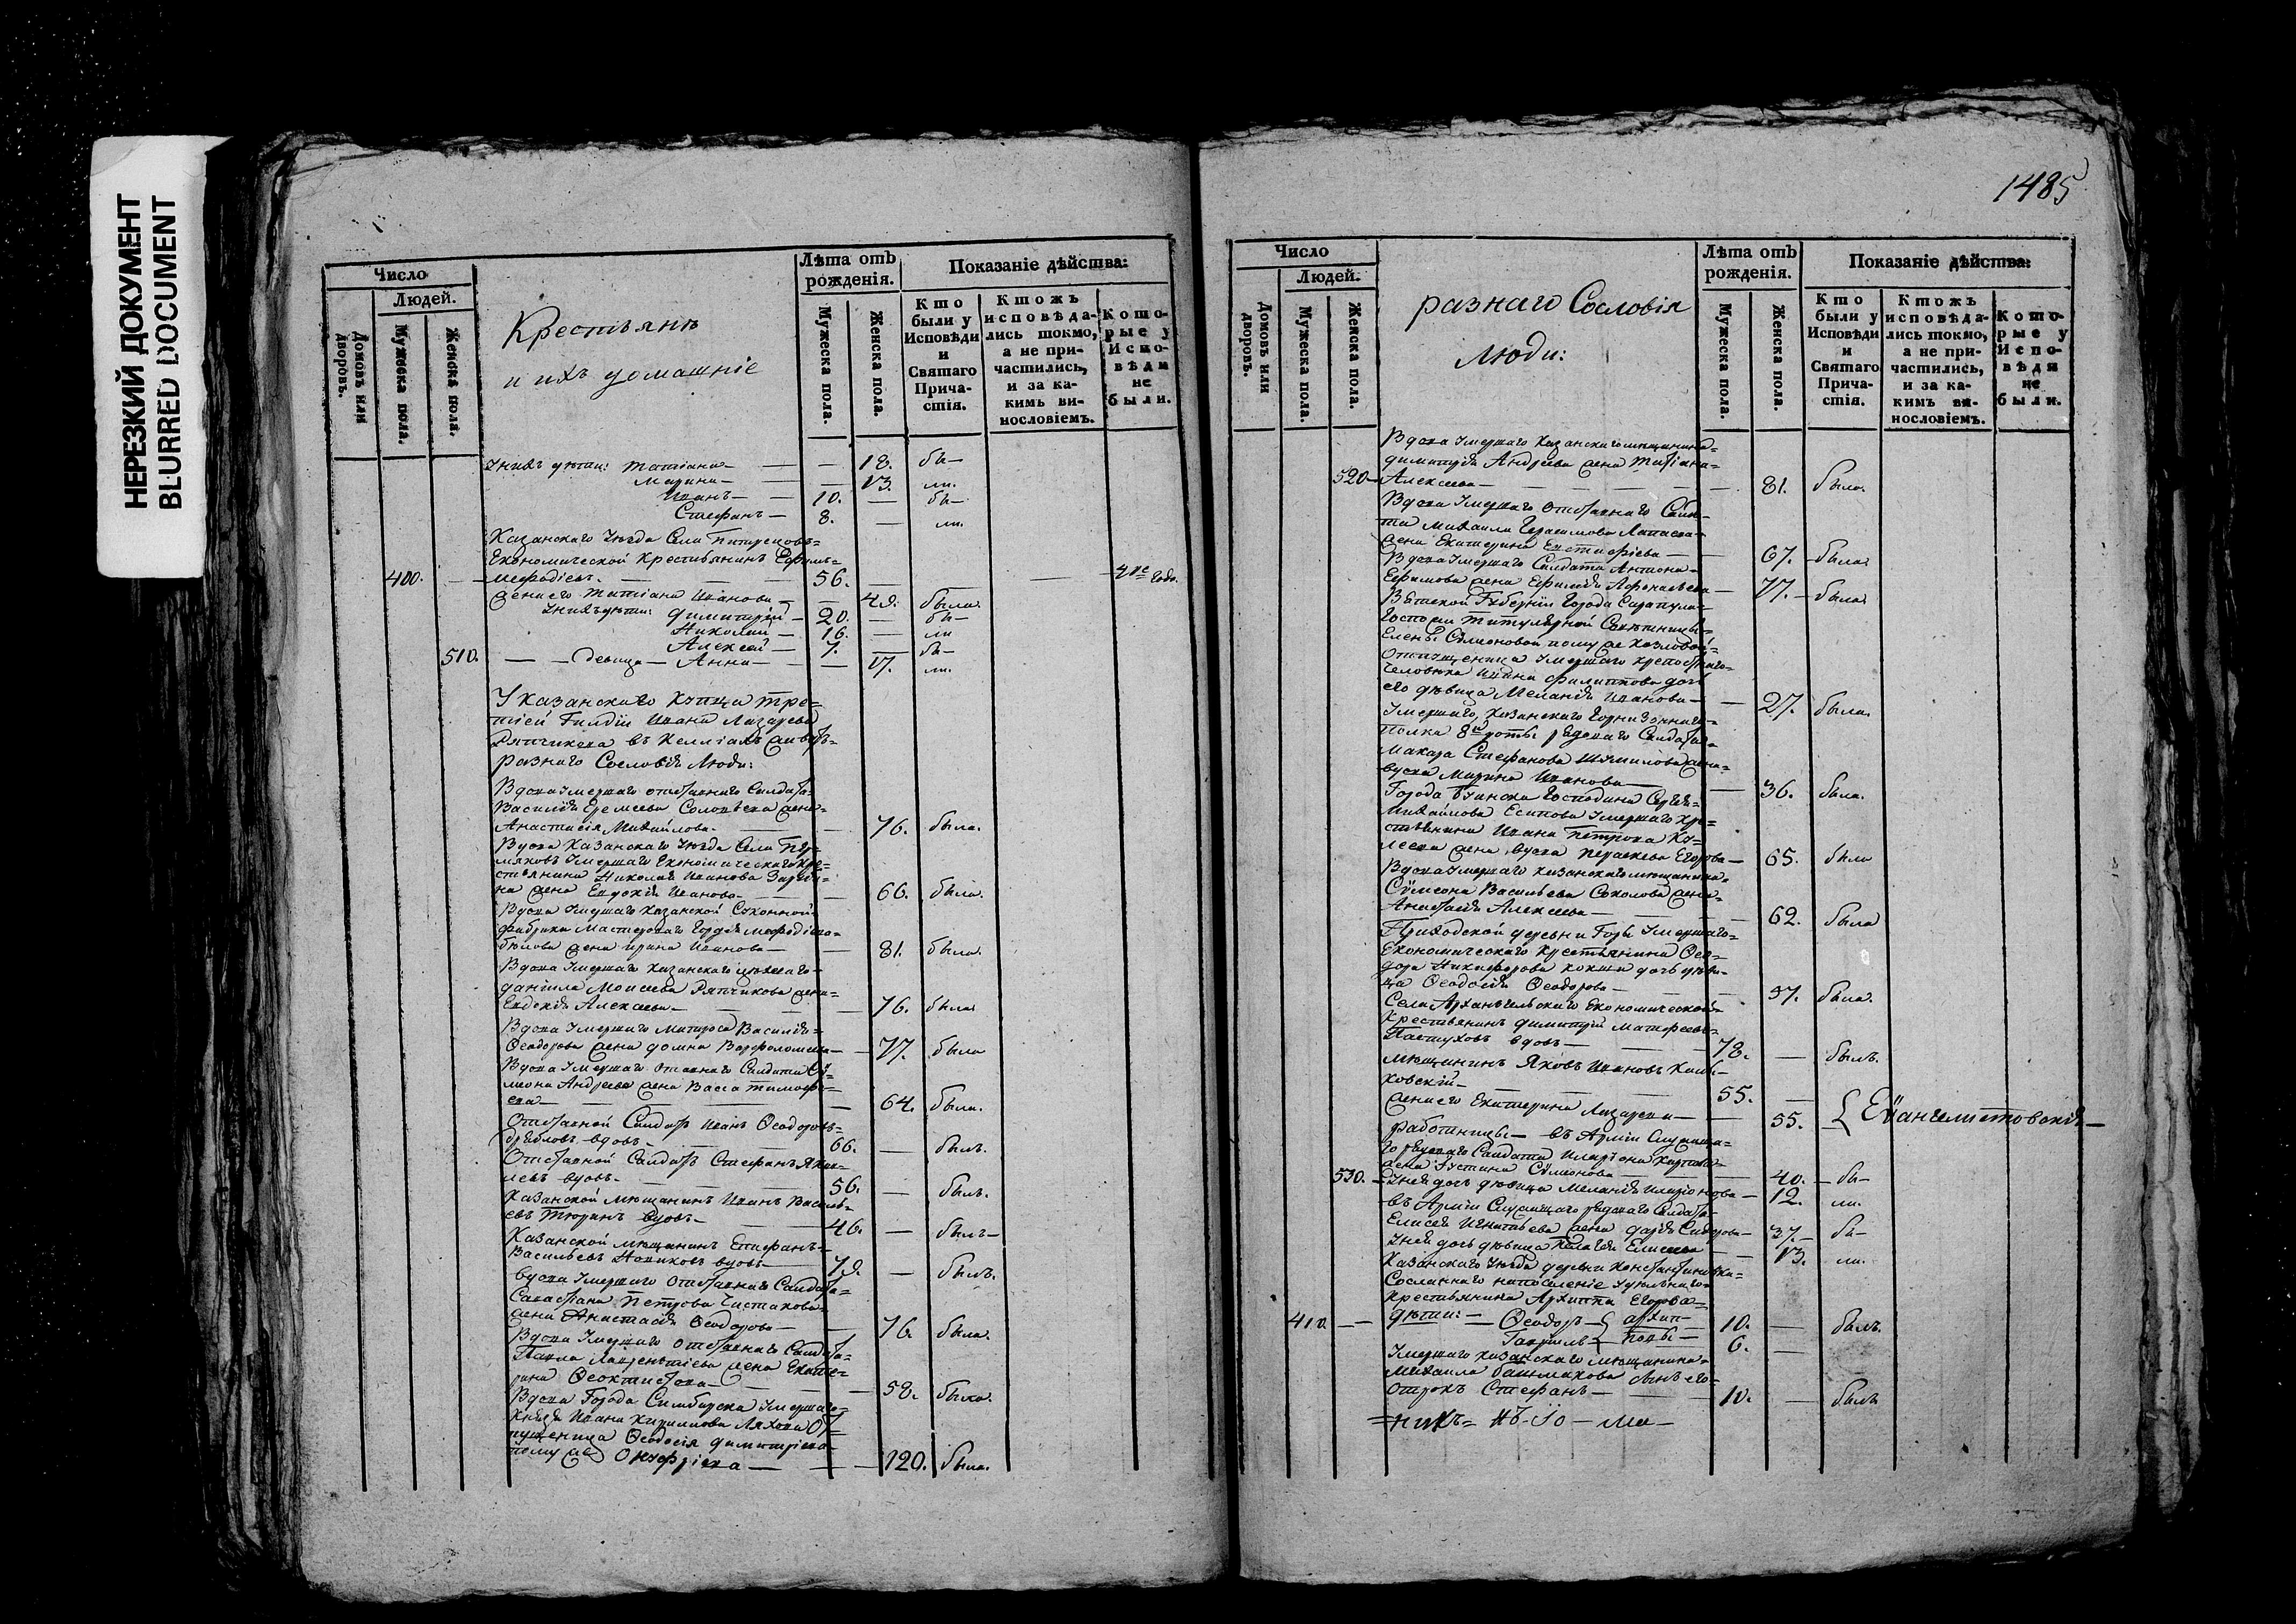 НЕРЕЗКИЙ ДОКУМЕНТ
BLURRED DOCUMENT
Число
Людей.
Домовъ или дворовъ.
Мужеска пола.
Женска пола.
Крестьянъ
и ихъ домашніе
Лѣта отъ рожденія.
Мужеска пола.
Женска пола.
Показаніе дѣйства:
Кто были у Исповѣди и Святаго Причастія.
Ктожъ исповѣдались токмо, а не причастились, и за какимъ винословіемъ.
Которые у Исповѣди не были.
У нихъ дѣти: Татіана — — 18. бы—
Марина — — 13. ли.
Иванъ — 10. — бы—
Стефанъ — 8. — ли.
Казанскаго Уѣзда Села
Економической Крестьянинъ Ефимъ=
400. — Мефодіевъ. — 56. —
жена его Татіана Иванова — 49. была.
У нихъ дѣти: Димитрій — 20. — бы—
Николай — 16. — ли
Алексей — 7. — бы—
510. — — девица — Анна — — 17. ли.
У Казанскаго Купца тре=
тіей Гилдіи Ивана Лазарева
Ряпчикова въ Келліахъ живутъ
разнаго Сословія Люди:
Вдова Умершаго отставнаго Салдата
Василія Еремеева жена
Анастасія Михайлова. — 76. была.
Вдова Казанскаго Уѣзда Села
Умершаго Економическаго Кре=
стьянина Николая Иванова
на жена Евдокія Иванова — 66. была.
Вдова Умершаго Казанской Суконной
фабрики Мастероваго Гордея Мефодіева
жена Ирина Иванова — 81. была.
Вдова Умершаго Казанскаго
Даніила Моисеева Ряпчикова жена
Евдокія Алексеева — 76. была
Вдова Умершаго Матроса Василія
Ѳеодорова жена Домна Варфоломеева — 77. была
Вдова Умершаго Отставнаго Салдата Сѵ=
меона Андреева жена Васса Тимофе=
ева — 64. была.
Отставной Салдатъ Иванъ Ѳеодоровъ
вдовъ — 66. — былъ.
Отставной Салдатъ Стефанъ Яков=
левъ вдовъ — 56. — былъ.
Казанской Мѣщанинъ Иванъ Василь=
евъ Тюринъ вдовъ — 46. — былъ—
Казанской Мѣщанинъ Епифанъ
Васильевъ Новиковъ вдовъ — 79. — былъ.
Вдова Умершаго Отставнаго Салдата
Савастіана Петрова Чистякова
жена Анастасія Ѳеодорова — 76. была.
Вдова Умершаго Отставнаго Салдата
Павла Лаврентіева жена Екате=
рина Ѳеоктистова — 58. была.
Вдова Города Симбирска Умершаго
Князя Ивана Кириллова От=
пущеница Ѳеодосія Димитріева
Онуфріева — — 120. была.
1485
Число
Людей.
Домовъ или дворовъ.
Мужеска пола.
Женска пола.
разнаго Сословія
люди:
Лѣта отъ рожденія.
Мужеска пола.
Женска пола.
Показаніе дѣйства:
Кто были у Исповѣди и Святаго Причастія.
Ктожъ исповѣдались токмо, а не причастились, и за какимъ винословіемъ.
Которые у Исповѣди не были.
Вдова Умершаго Казанскаго мѣщанина
Димитрія Андреева жена Татіана
520 — Алексеева — — 81. была.
Вдова Умершаго Отставнаго Салда=
та Михаила Герасимова
жена Екатерина Евстафіева — 67. — была
Вдова Умершаго Салдата Антона
Ефимова жена Ефимія Афонасьева — 77. — была
Вятской Губерніи Города Сарапула
Госпожи Титулярной Совѣтницы
Елены Сѵмеоновой
Отпущеница Умершаго крепостнаго
Человека Ивана Филиппова дочь
его дѣвица Меланія Иванова — 27. была.
Умершаго Казанскаго Горнизоннаго
полка 8й роты рядоваго Салдата
Макара Стефанова жена
вдова Марина Иванова — 36. была.
Города Буинска Господина Сергея
Михайлова Есипова Умершаго кре=
стьянина Ивана Петрова
жена вдова Параскева Егорова — 65. была
Вдова Умершаго Казанскаго мѣщанина
Сѵмеона Васильева Соколова жена
Анастасія Алексеева — 62. была
Приходской деревни Горы Умершаго
Економическаго Крестьянина Ѳео=
дора Никифорова дочь дѣви=
ца Ѳеодосія Ѳеодорова — 37. была.
Села Архангельскаго Економической
Крестьянинъ Димитрій Матфеевъ
Пастуховъ вдовъ — 78. — былъ.
Мѣщанинъ Яковъ Ивановъ
ковскій — 55. —
жена его Екатерина Лазарева — 55. { Еѵангелистовскія —
работницы — въ Арміи Служаща=
го рядоваго Салдата Иларіона Карпова
жена Устина Сѵмеонова — 40. — бы—
530. — У ней дочь дѣвица Меланія Иларіонова — 12. ли.
въ Арміи Служащаго рядоваго Салдата
Елисея Игнатьева жена Дарія Сидорова — 37. — бы—
У ней дочь дѣвица Пелагія Елисеева — 13. ли.
Казанскаго Уѣзда деревни Константиновки
Сосланнаго на поселеніе Удѣльнаго
Крестьянина Архиппа Егорова
410 — — дѣти: — Ѳеодоръ — { архип— 10. — былъ.
Гавріилъ { повы — 6. —
Умершаго Казанскаго Мѣщанина
Михаила Башмакова сынъ его
отрокъ Стефанъ — 10. — былъ